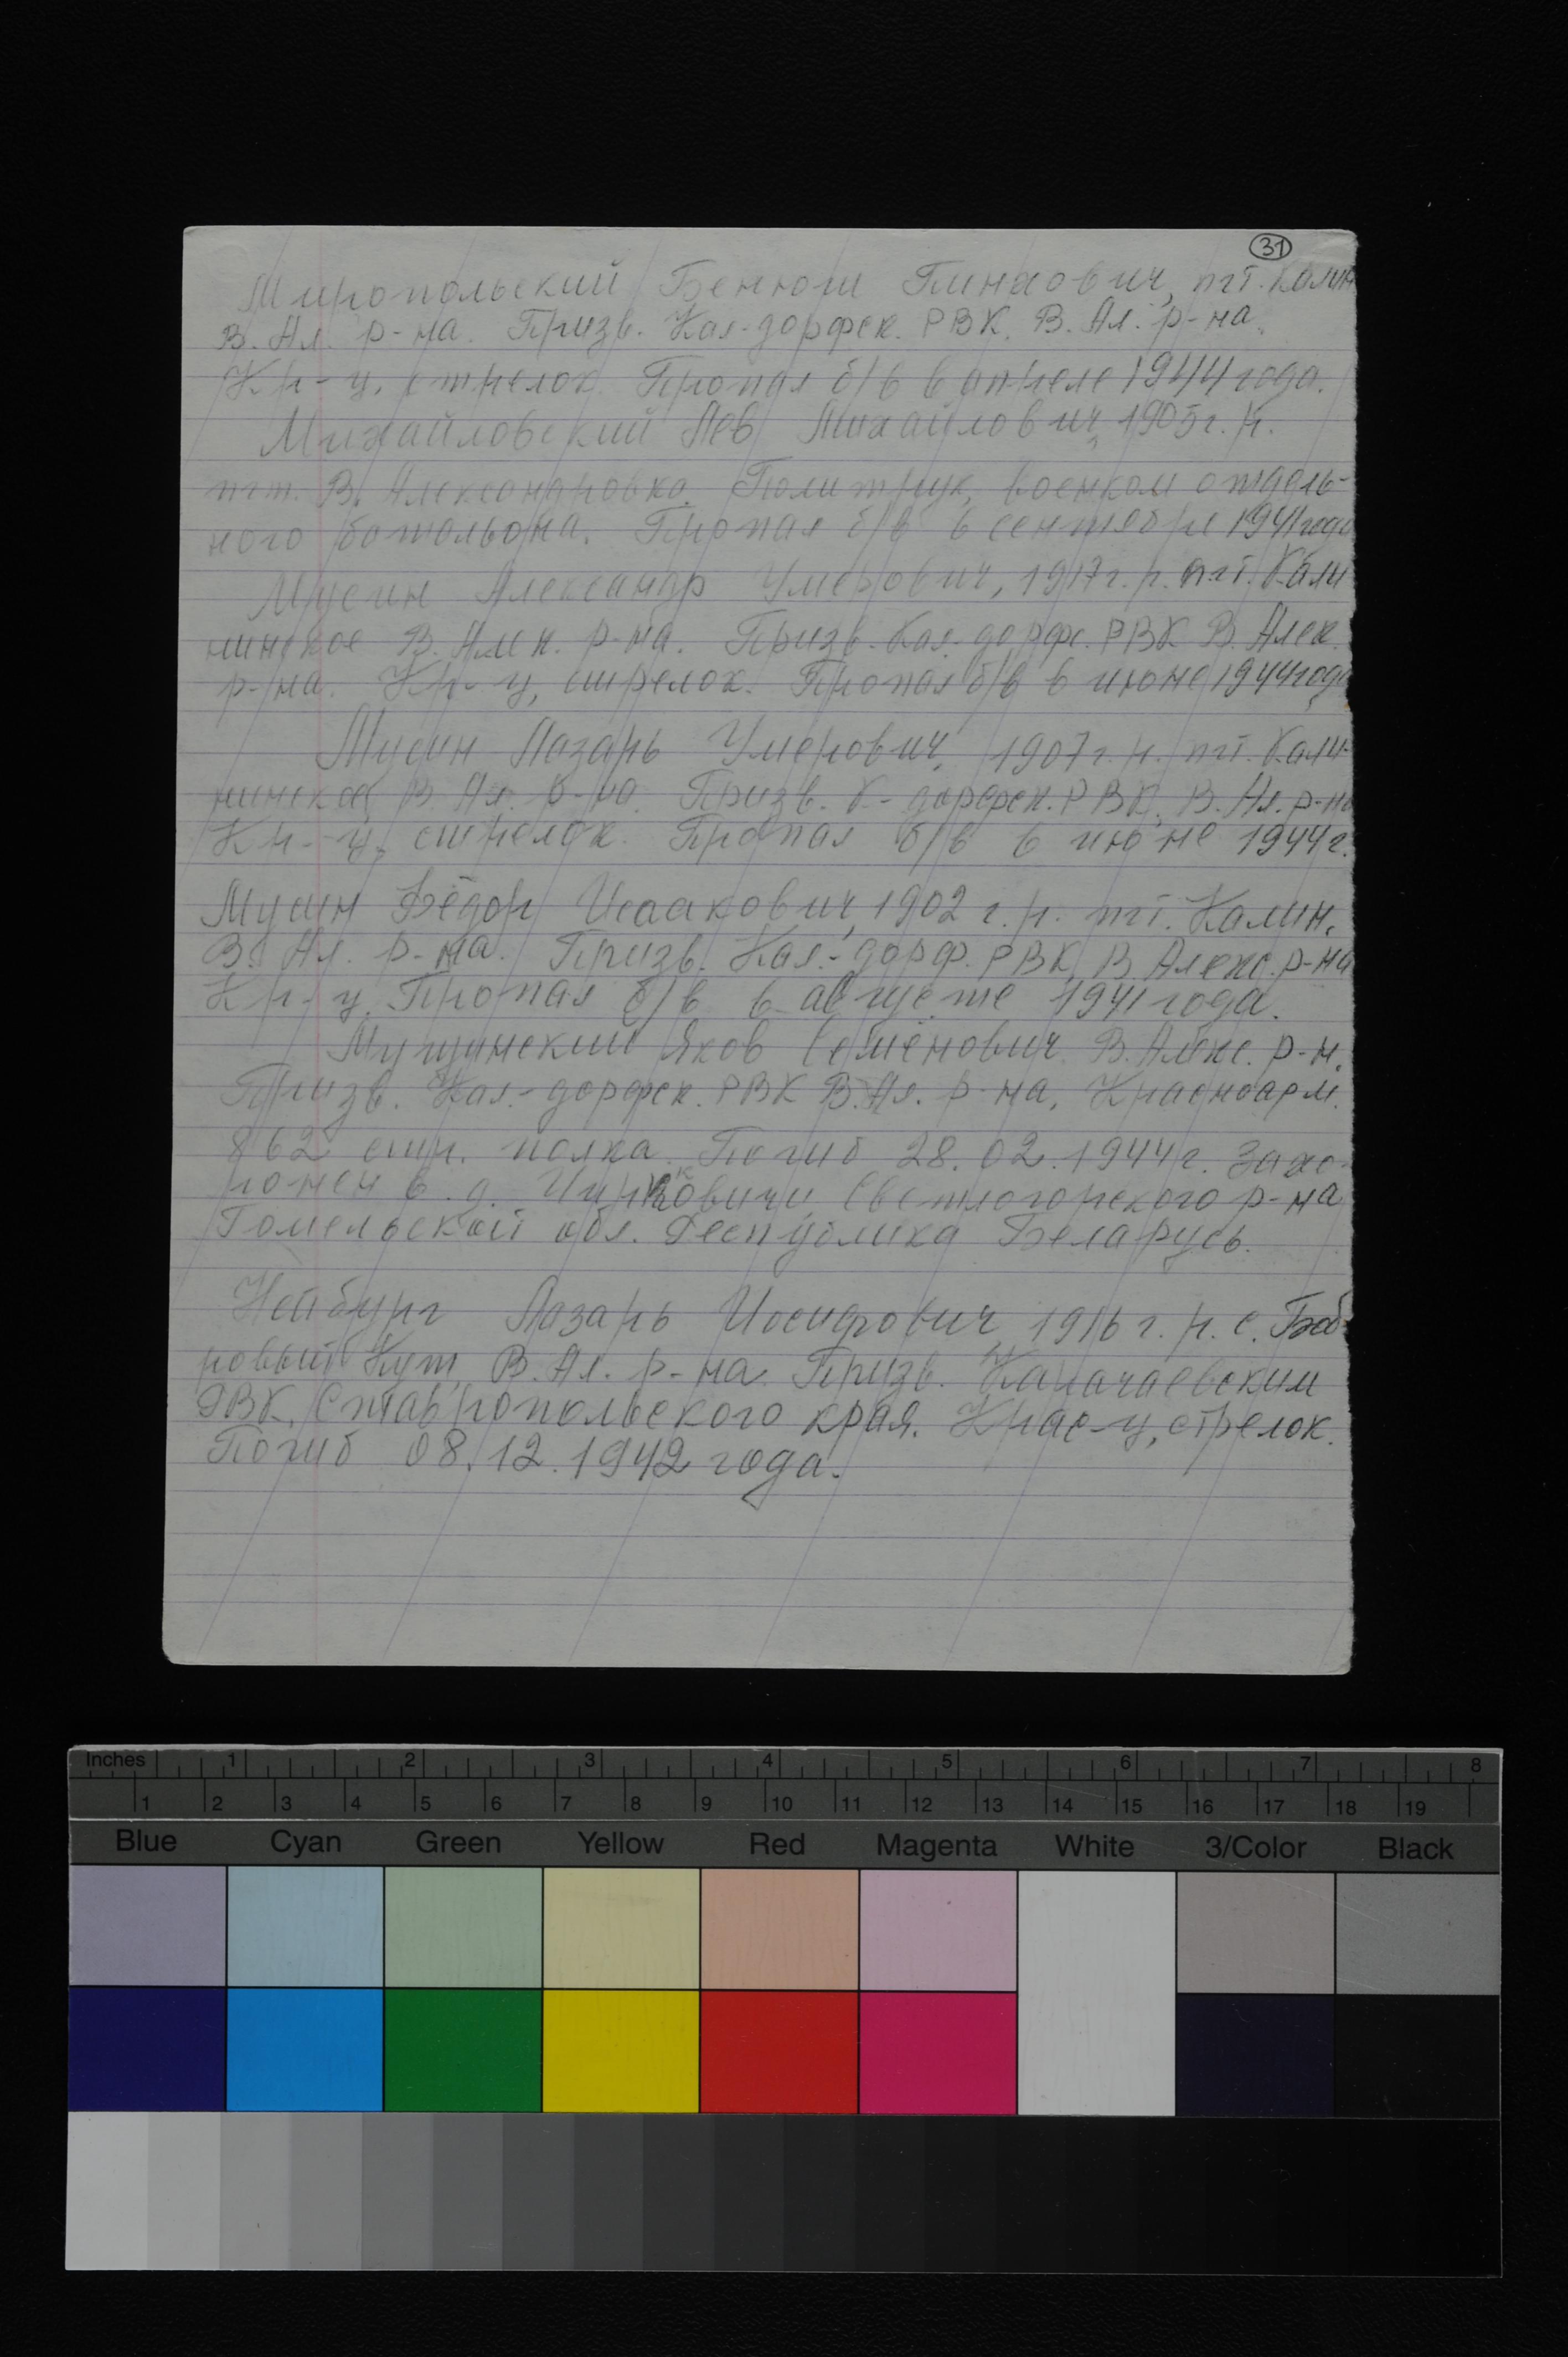 31
Миропольский Бенюш Пинхович, пгт. Калин
В. Ал. р-на. Призв. Кал-дорфск. РВК. В. Ал. р-на.
Кр-ц, стрелок. Пропал б/в в апреле 1944 года.
Михайловский Лев Михайлович, 1905 г. р.
пгт. В. Александровка. Политрук, военком отдель-
ного батальона. Пропал б/в в сентябре 1941 года
Мусин Александр Умерович, 1917 г. р. пгт. Кали
нинское В. Алек. р-на. Призв. Кал.-дорфс. РВК В. Алек.
р-на. Кр-ц, стрелок. Пропал б/в в июне 1944 года
Мусин Лазарь Умерович, 1907 г. р. пгт. Кали-
нинское В. Ал. р-на. Призв. К-дорфск. РВК, В. Ал. р-на
Кр-ц, стрелок. Пропал б/в в июне 1944 г.
Мусин Фёдор Исаакович, 1902 г. р. пгт. Калин.
В. Ал. р-на. Призв. Кал.-дорф. РВК, В. Алекс. р-на
Кр-ц. Пропал б/в в августе 1941 года.
Яков Семёнович. В. Алекс. р-н.
Призв. Кал.-дорфск. РВК В. Ал. р-на. Красноарм.
862 стр. полка. Погиб 28.02.1944 г. Захо-
ронен в д. Светлогорского р-на
Гомельской обл. Республика Беларусь.
Нейбург Лазарь Иосифович, 1916 г. р. с. Боб-
ровый Кут, В. Ал. р-на. Призв.
РВК, Ставропольского края. Крас-ц, стрелок.
Погиб 08.12.1942 года.
Inches 1 2 3 4 5 6 7 8
1 2 3 4 5 6 7 8 9 10 11 12 13 14 15 16 17 18 19
Blue Cyan Green Yellow Red Magenta White 3/Color Black